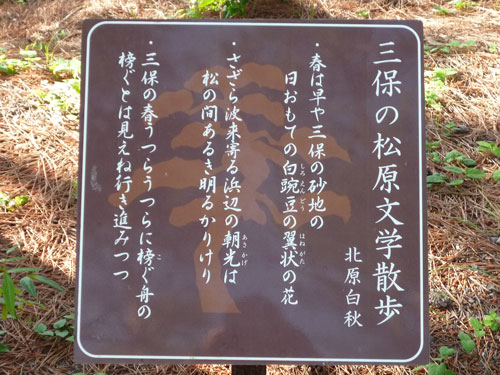 三保の松原文学散歩
北原白秋
・春は早や三保の砂地の
日おもての白豌豆の翼状の花
しろえんどう
はねがた
・さざら波来寄る浜辺の朝光は
あさかげ
松の間あるき明るかりけり
・三保の春うつらうつらに榜ぐ舟の
こ
榜ぐとは見えね行き進みつつ